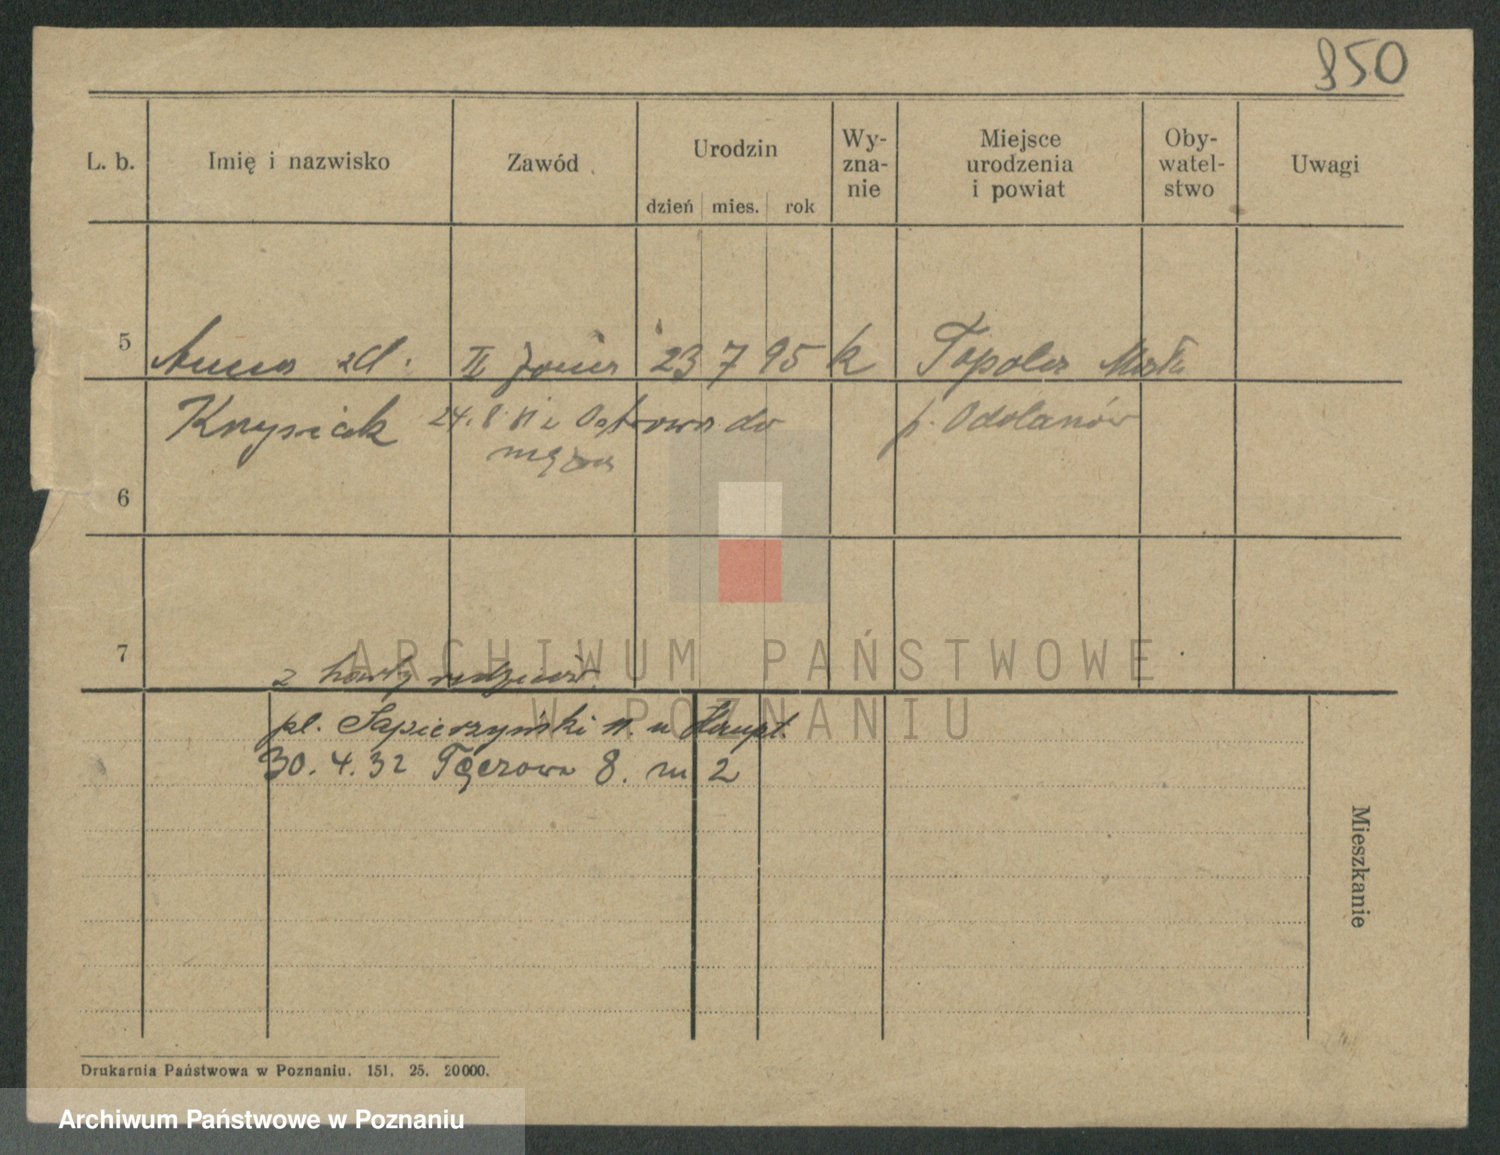 850
L. b.
Imię i nazwisko
Zawód
Urodzin
dzień mies. rok
Wy-
zna-
nie
Miejsce
urodzenia
i powiat
Oby-
watel-
stwo
Uwagi
5
Anna zd. II żona 23 7 95 k Topola Mała
Krysiak 24.8 31 z Ostrowa do p. Odolanów
męża
6
7
z karty rodziców
pl. Sapierzyński 11. u Haupt.
30.4.32 Tęczowa 8. m 2
Mieszkanie
Drukarnia Państwowa w Poznaniu. 151. 25. 20000.
ARCHIWUM PAŃSTWOWE
W POZNANIU
Archiwum Państwowe w Poznaniu